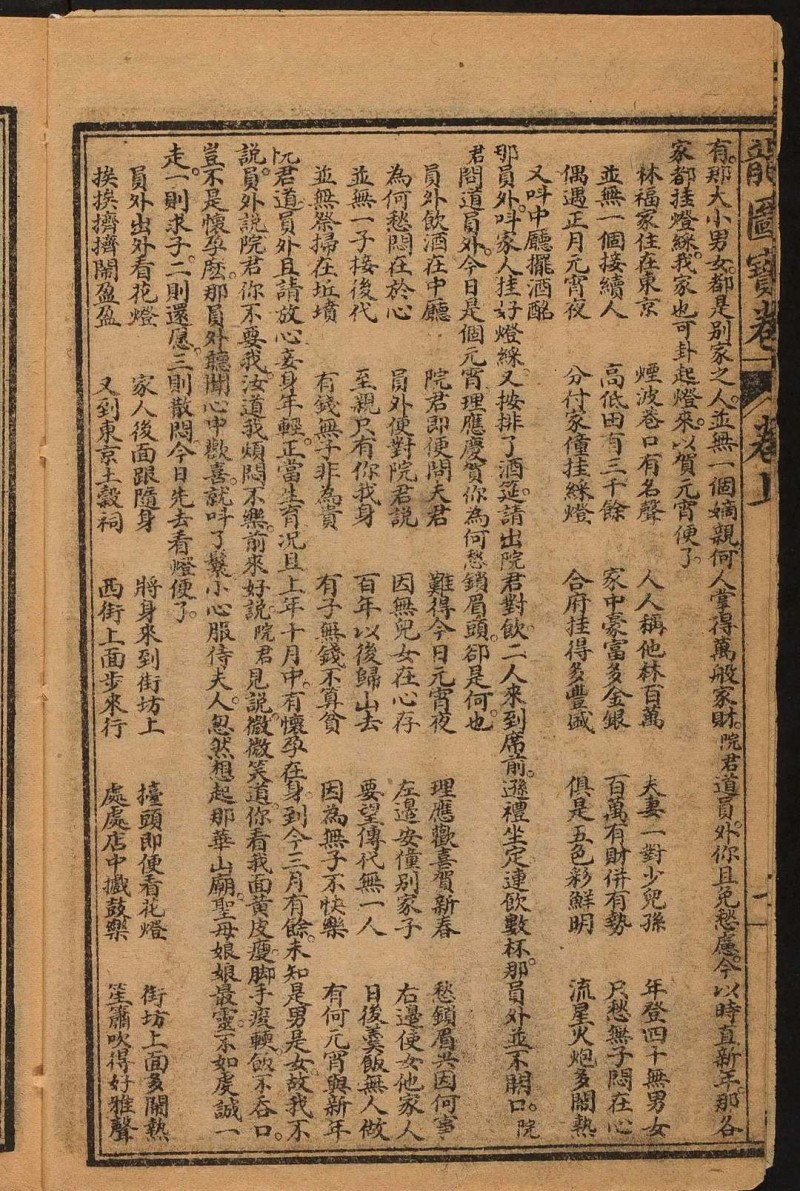 龍圖寶卷 卷上
有。那大小男女。都是别家之人。並無一個嫡親。何人掌得萬般家財。院君道員外你且免愁慮。今以時直新年。那各
家都挂燈綵。我家也可卦起燈來。以賀元宵便了。
林福家住在東京 煙波巷口有名聲 人人稱他林百萬 夫妻一對少兒孫 年登四十無男女
並無一個接續人 高低田有三千餘 家中豪富多金銀 百萬有財併有勢 只愁無子悶在心
偶遇正月元宵夜 分付家僮挂綵燈 合府挂得多豐盛 俱是五色彩鮮明 流星火炮多鬧熱
又呌中廳擺酒酩
那員外。呌家人挂好燈綵。又按排了酒筵。請出院君對飲。二人來到席前。遜禮坐定連飲數杯。那員外並不開口。院
君問道員外。今日是個元宵。理應慶賀。你為何愁鎖眉頭。卻是何也。
員外飲酒在中廳 院君即便問夫君 難得今日元宵夜 理應歡喜賀新春 愁鎖眉尖因何事
為何愁悶在於心 員外便對院君說 因無兒女在心存 左邉安僮别家子 右邉使女他家人
並無一子接後代 至親只有你我身 百年以後歸山去 要望傳代無一人 日後羹飯無人做
並無祭掃在坵墳 有錢無子非為貴 有子無錢不算貧 因為無子不快樂 有何元宵與新年
院君道員外且請放心。妾身年輕。正當生育。况且上年十月中。有懷孕在身。到今三月有餘。未知是男是女。故我不
說。員外說院君你不要我。汝道我煩悶不樂。前來好說。院君見說。微微笑道。你看我面黃皮瘦。脚手痠軟。飯不吞口。
豈不是懷孕麽。那員外聽聞心中歡喜。就呌了鬟小心服侍夫人。忽然想起那華山廟。聖母娘娘最靈。不如虔誠一
走。一則求子。二則還愿。三則散悶。今日先去看燈便了。
員外出外看花燈 家人後面跟隨身 將身來到街坊上 擡頭即便看花燈 街坊上面多鬧熱
挨挨擠擠鬧盈盈 又到東京土穀祠 西街上面步來行 處處店中搣鼓樂 笙簫吹得好雅聲